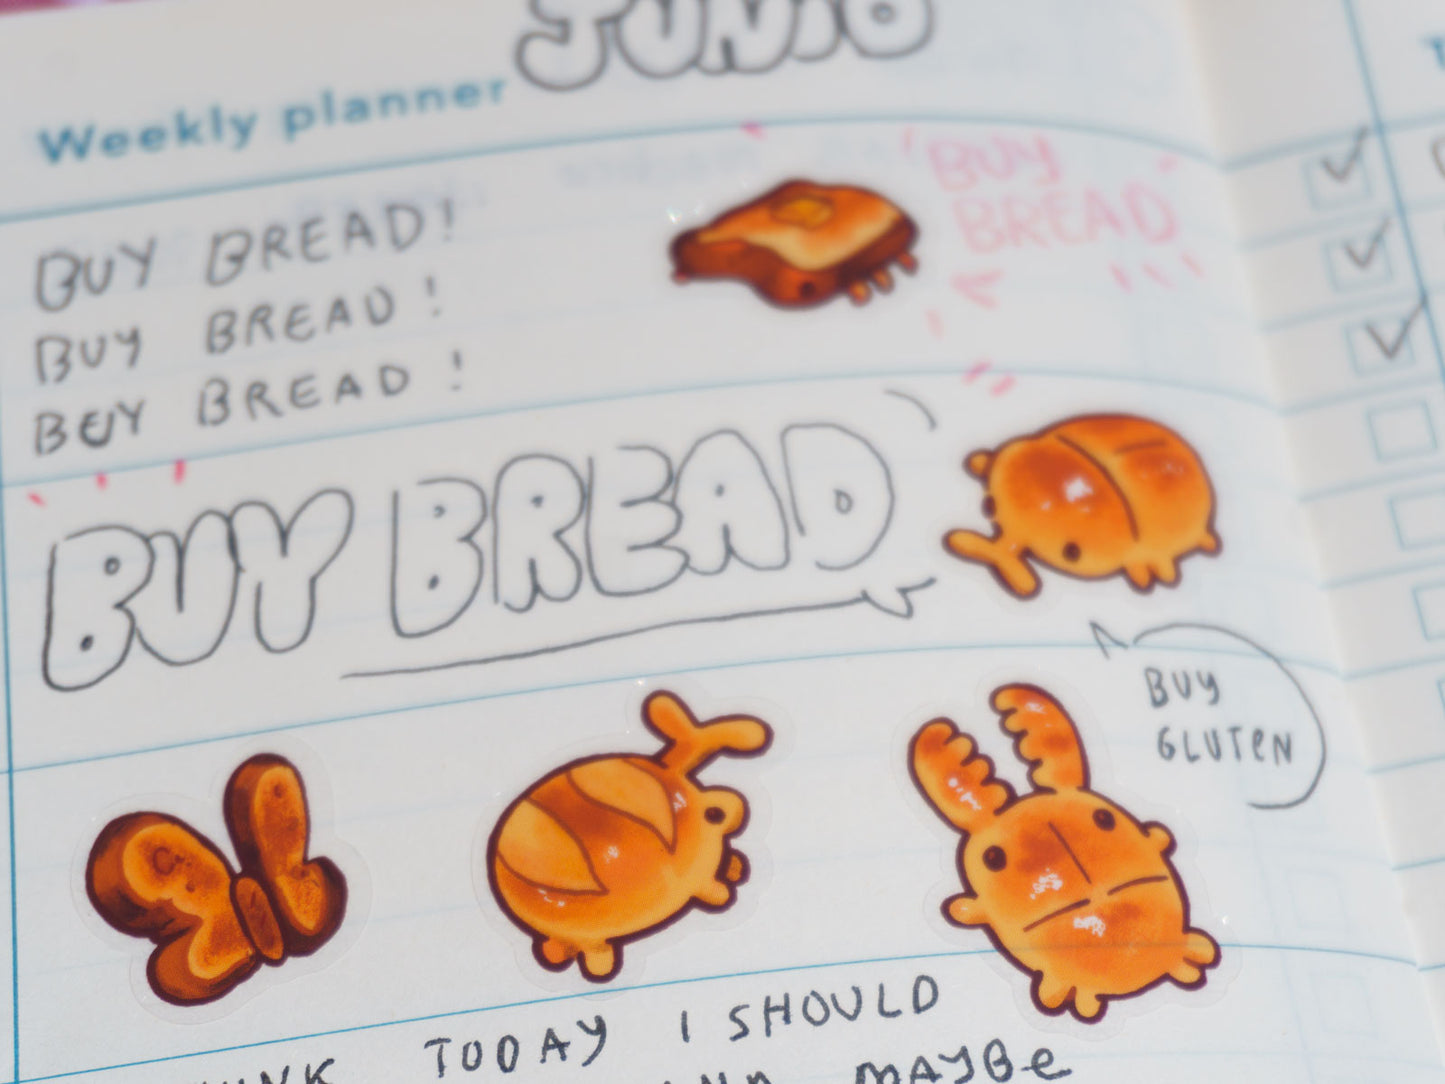 JUNIO
Weekly planner
BUY BREAD!
BUY BREAD!
BUY BREAD!
BUY
BREAD
BUY BREAD
BUY
GLUTEN
TODAY I SHOULD
MAYBE